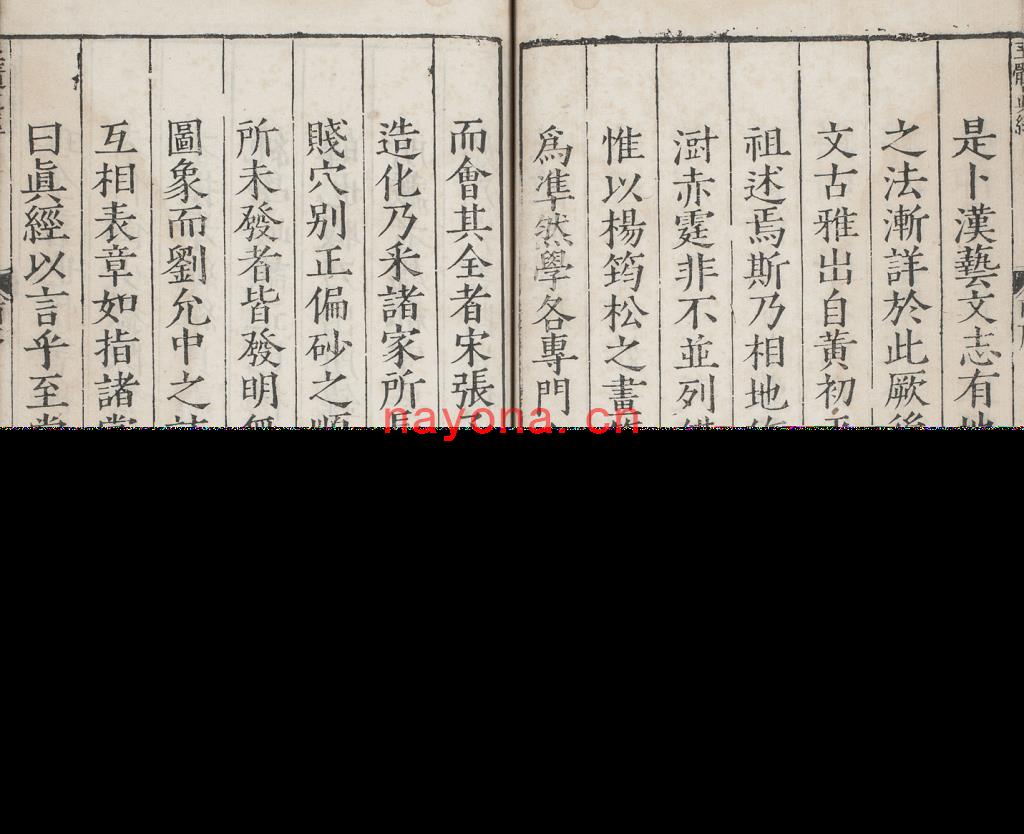 是卜漢藝文志有地
之法漸詳於此厥後
文古雅出自黃初平
祖述焉斯乃相地
澍赤霆非不並列
惟以楊筠松之書惟
為準然學各專門
而會其全者宋張子
造化乃采諸家所長
賤穴別正偏砂之順
所未發者皆發明無
圖象而劉允中之註
互相表章如指諸掌
曰眞經以言乎至當
nayona.cn